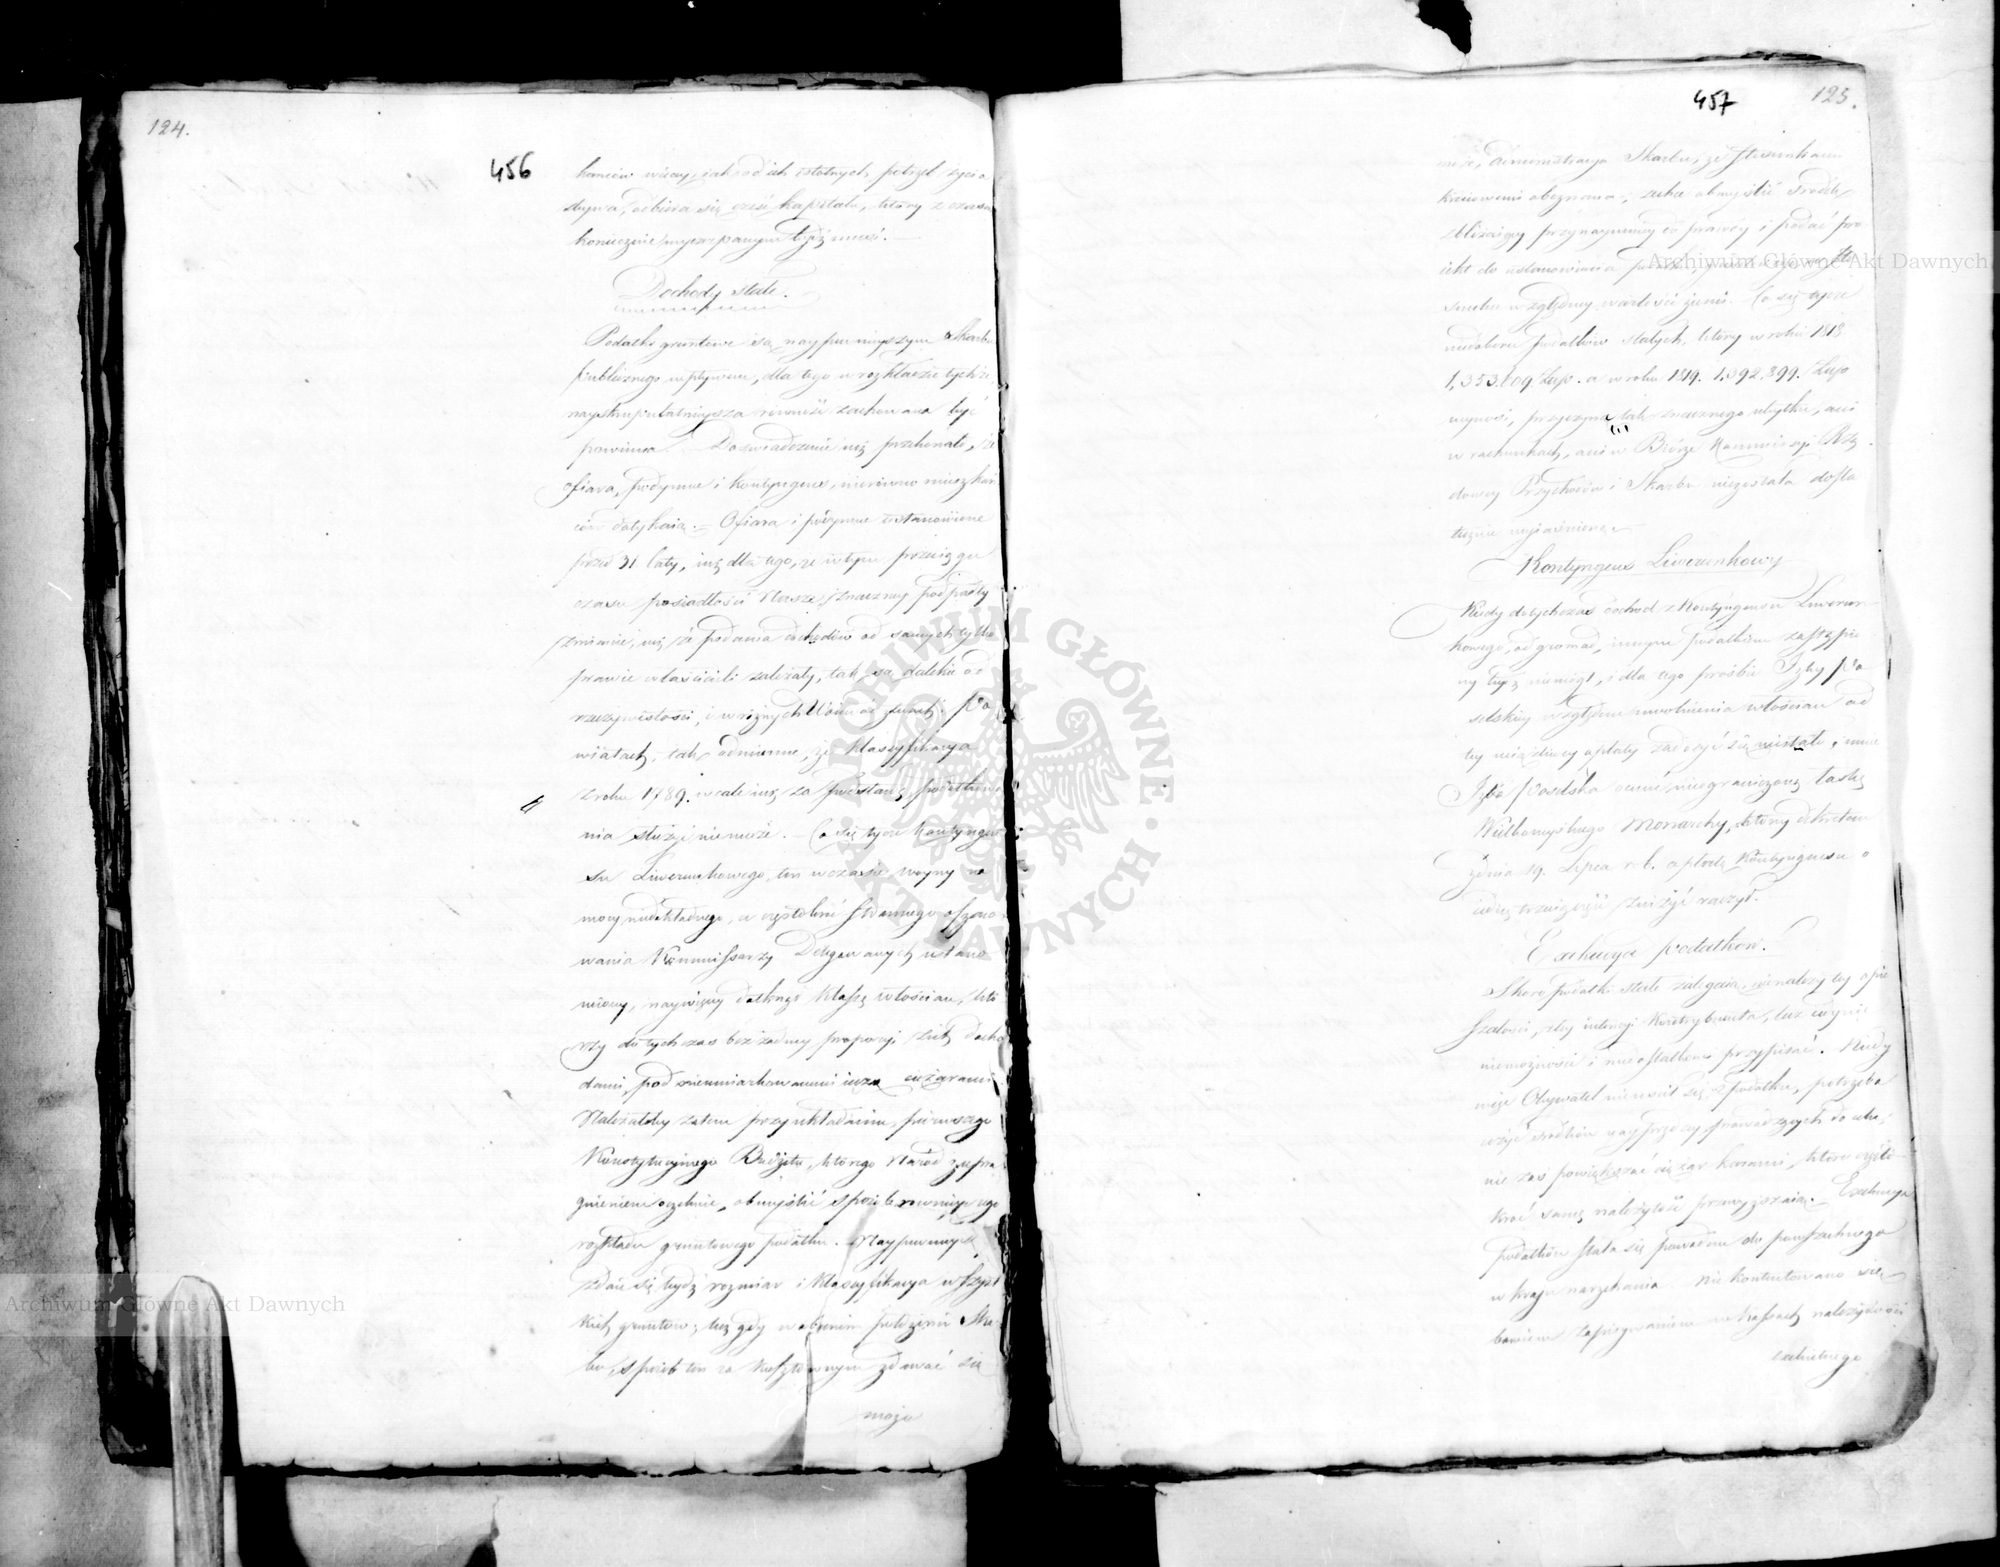 124.
456
kańców więcey, iak od ich istotnych potrzeb życia
zbywa, odbiera się część kapitału, który z czasem
koniecznie wyczerpanym bydź musi. —
Dochody stałe.
Podatki gruntowe są naypewnieyszym Skarbu
publicznego wpływem, dla tego w rozkładzie tychże
nayskrupulatnieysza równość zachowana być
powinna. — Doświadczenie nas przekonało, że
ofiara, podymne i kontyngens, nierówno mieszkań
ców dotykaią. — Ofiara i podymne ustanowione
przed 31 laty, iuż dla tego, że w tym przeciągu
czasu posiadłości Nasze znaczney podpadły
zmianie, iuż że podania dochodów od samych tylko
prawie właścicieli zależały, tak są dalekie od
rzeczywistości, i w różnych Woiewództwach i Po
wiatach, tak odmienne, że klassyfikacya
z roku 1789. wcale iuż za podstawę podatkowa
nia służyć niemoże. — Co się tycze Kontyngen
su Liwerunkowego, ten w czasie woyny na
mocy niedokładnego, a częstokroć stronnego oszaco
wania Kommissarzy Delegowanych ustano
wiony, naywięcey dotknął klassę włościan, któ
rzy dotychczas bez żadney proporcyi z ich docho
dami, pod niemiarkowanemi ięczą ciężarami
Należałoby zatem przy układaniu pierwszego
Konstytucyinego Budżetu, którego Naród z upra
gnieniem oczekuie, obmyślić sposób równieyszego
rozkładu gruntowego podatku. Naypewnieyszy
zdaie się bydź rozmiar i klassyfikacya wszyst
kich gruntów; lecz gdy w obecnym położeniu Skar
bu, sposób ten za kosztownym zdawać się
może
457
125.
może, Administracya Skarbu, ze stosunkami
kraiowemi obeznana, zechce obmyślić środek
zbliżaiący przynaymniey do prawdy i podać pro
iekt do ustanowienia podatku gruntowego w sto
sunku względney wartości ziemi. Co się tycze
niedoboru podatków stałych, który w roku 1818
1,353,609 Złtp. a w roku 1819. 1,392,899. Złtp
wynosi, przyczyna tak znacznego ubytku, ani
w rachunkach, ani w Biórze Kommissyi Rzą
dowey Przychodów i Skarbu niezostała dosta
tecznie wyiaśnioną.
Kontyngens Liwerunkowy
Kiedy dotychczas dochód z Kontyngensu Liwerun
kowego, od gromad, innym podatkiem zastąpio
ny bydź niemógł, i dla tego prośbie Izby Po
selskiey względem uwolnienia włościan od
tey uciążliwey opłaty zadosyć się niestało, umie
Izba Poselska cenić nieograniczoną łaskę
Wielkomyślnego Monarchy, który dekretem
z dnia 19. Lipca r. b. opłatę Kontyngensu o
iedną trzecią część zniżyć raczył.
Exekucya podatków.
Skoro podatki stałe zalegaią, nienależy tey opie
szałości, złey intencyi kontrybuenta, lecz iedynie
niemożności i niedostatkowi przypisać. Kiedy
więc Obywatel nieuiścił się z podatku, potrzeba
użyć środków nayprędzey prowadzących do celu,
nie zaś powiększać ciężar karami, które często
kroć samę należytość przewyższaią. — Exekucya
podatków stała się powodem do powszechnego
w kraiu narzekania. Nie kontentowano się
bowiem zapisywaniem w Kassach należytości
exekutnego